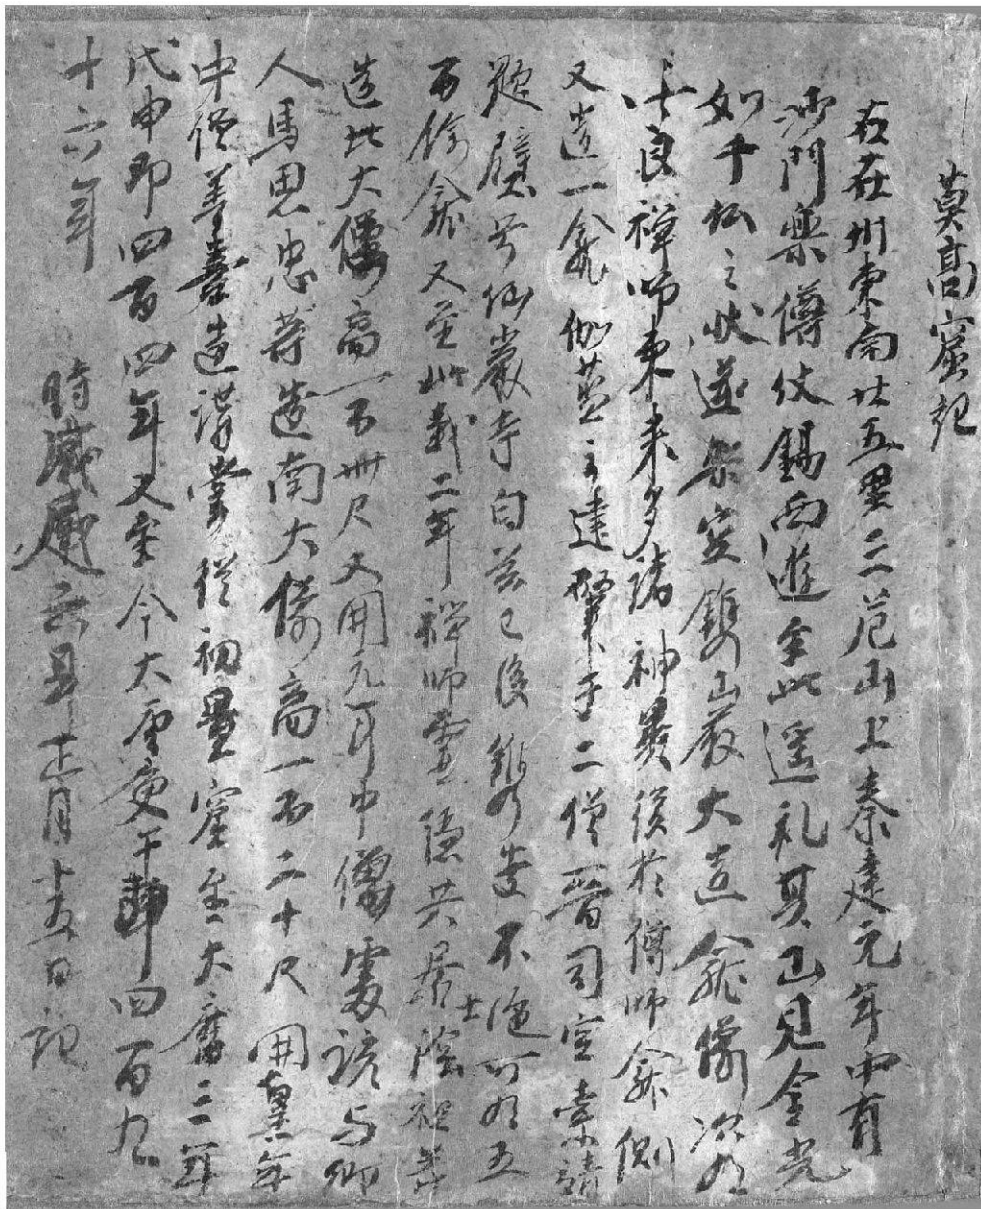 莫高窟記
右在州東南廿五里三危山上秦建元年中有
沙門樂僔仗錫西遊至此遥礼其山見金光
如千仏之狀遂架空鐫山巖大造龕像次有
法良禪師東来多諸神異復於僔師龕側
又造一龕伽藍之建肇于二僧晉司空索靖
題壁号仙巖寺自兹已後鐫造不絶可有五
百餘龕又至延載二年禅師靈隱共居士陰祖等
造北大像高一百卌尺又開元年中僧處諺与鄉
人馬思忠等造南大像高一百二十尺開皇年
中僧善喜造講堂從初置窟至大曆三年
戊申即四百四年又至今大唐庚午即四百九
十六年 時咸通六年正月十五日記